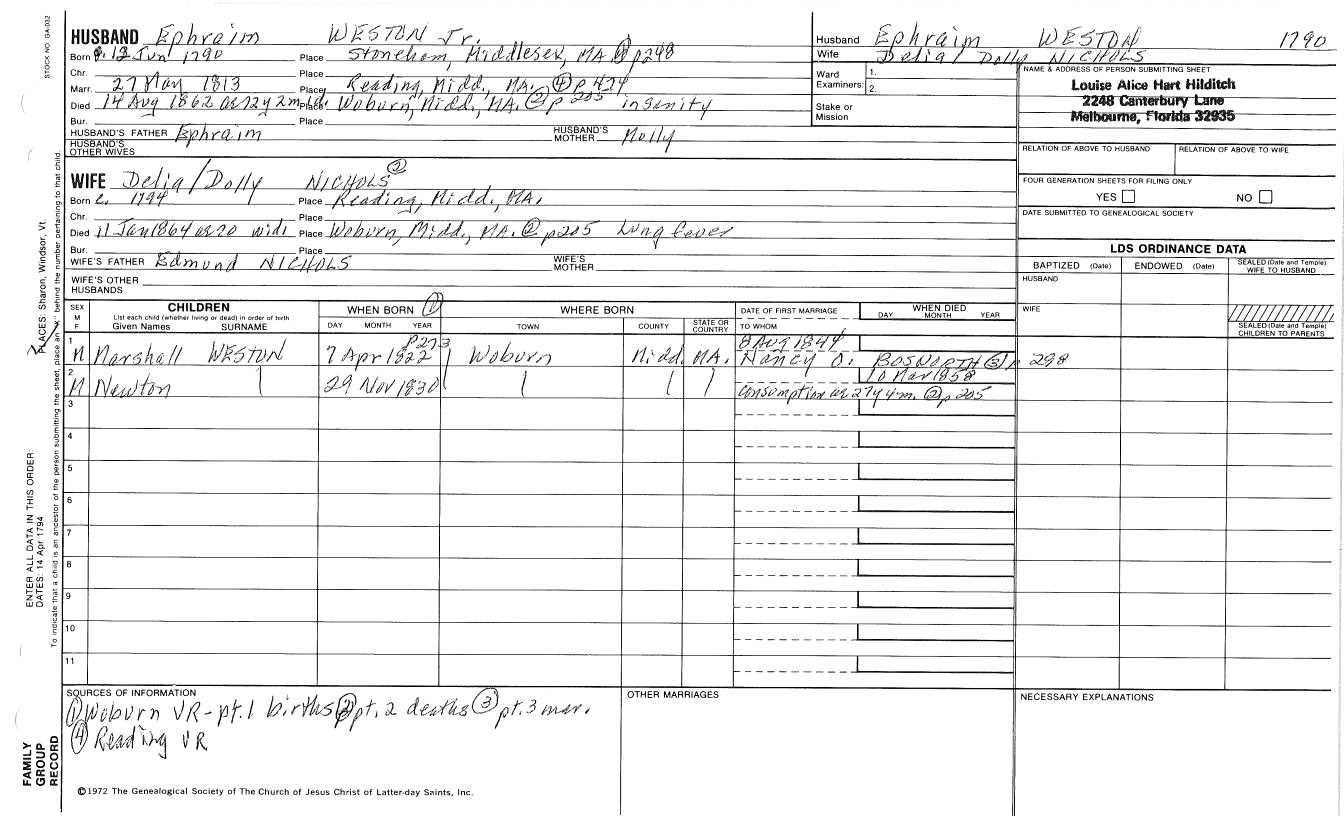 STOCK NO. GA-032
HUSBAND Ephraim WESTON Jr.
Born c. 12 Jun 1790 Place Stoneham, Middlesex, MA ① p 248
Chr. Place
Marr. 27 May 1813 Place Reading, Midd., MA. ④ p 474
Died 14 Aug 1862 ae 72y 2m Place Woburn, Midd., MA. ② p 205 insanity
Bur. Place
HUSBAND'S FATHER Ephraim HUSBAND'S MOTHER Molly
HUSBAND'S OTHER WIVES
WIFE Delia/Dolly NICHOLS ②
Born c. 1794 Place Reading, Midd., MA.
Chr. Place
Died 11 Jan 1864 ae 70 wid. Place Woburn, Midd., MA. ② p 205 Lung fever
Bur. Place
WIFE'S FATHER Edmund NICHOLS WIFE'S MOTHER
WIFE'S OTHER HUSBANDS
Husband Ephraim WESTON 1790
Wife Delia/ Dolly NICHOLS
Ward Examiners: 1. 2.
Stake or Mission
NAME & ADDRESS OF PERSON SUBMITTING SHEET
Louise Alice Hart Hilditch
2248 Canterbury Lane
Melbourne, Florida 32935
RELATION OF ABOVE TO HUSBAND RELATION OF ABOVE TO WIFE
FOUR GENERATION SHEETS FOR FILING ONLY
YES NO
DATE SUBMITTED TO GENEALOGICAL SOCIETY
LDS ORDINANCE DATA
BAPTIZED (Date) ENDOWED (Date) SEALED (Date and Temple) WIFE TO HUSBAND
HUSBAND
WIFE
SEALED (Date and Temple) CHILDREN TO PARENTS
SEX M F CHILDREN WHEN BORN ① WHERE BORN DATE OF FIRST MARRIAGE WHEN DIED
List each child (whether living or dead) in order of birth
Given Names SURNAME DAY MONTH YEAR TOWN COUNTY STATE OR COUNTRY TO WHOM DAY MONTH YEAR
p 273 8 Aug 1844
1 M Marshall WESTON 7 Apr 1822 Woburn Midd. MA. Nancy O. BOSWORTH ③ p 298
10 Mar 1858
2 M Newton 29 Nov 1830 consumption ae 27y 4m. ② p 205
3
4
5
6
7
8
9
10
11
SOURCES OF INFORMATION
① Woburn VR - pt. 1 births ② pt. 2 deaths ③ pt. 3 mar.
④ Reading VR
OTHER MARRIAGES
NECESSARY EXPLANATIONS
©1972 The Genealogical Society of The Church of Jesus Christ of Latter-day Saints, Inc.
FAMILY GROUP RECORD
ENTER ALL DATA IN THIS ORDER:
DATES: 14 Apr 1794
PLACES: Sharon, Windsor, Vt.
To indicate that a child is an ancestor of the person submitting the sheet, place an "X" behind the number pertaining to that child.